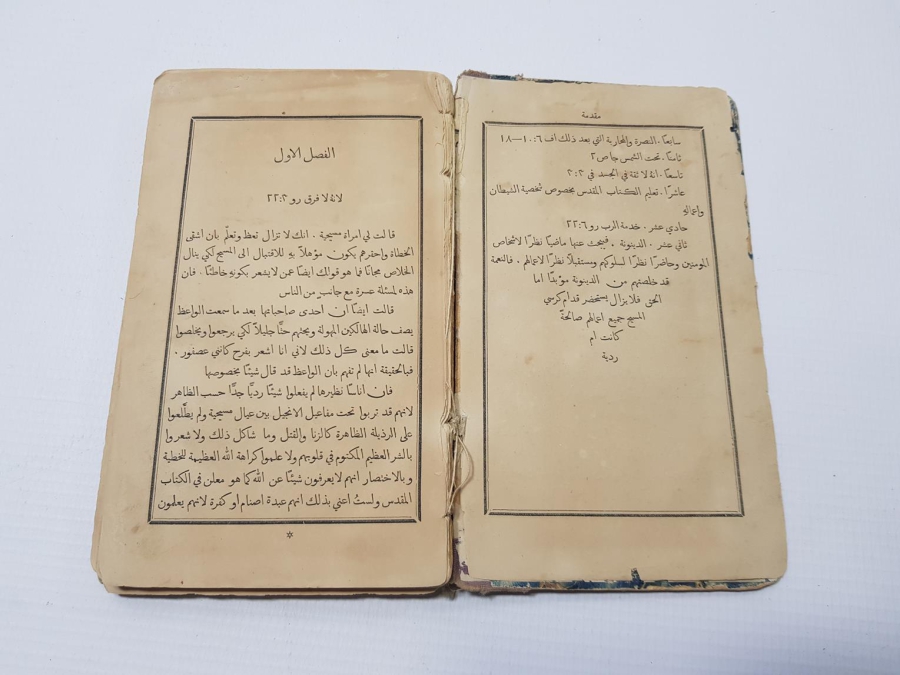 مقدمة
سابعًا. النصرة والمحاربة التي بعد ذلك اف ٦: ١٠—١٨
ثامنًا. تحت الشمس جا ص ٢
تاسعًا. انه لا ثقة في الجسد في ٣:٣
عاشرًا. تعليم الكتاب المقدس مخصوص شخصية الشيطان
واعماله
حادي عشر. خدمة الرب رو ٦:٢٢
ثاني عشر. الدينونة. فيبحث عنها ماضيًا نظرًا لاشخاص
المومنين وحاضرًا نظرًا لسلوكهم ومستقبلًا نظرًا لاعمالهم. فالنعمة
قد خلصتهم من الدينونة مؤبدًا اما
الحق فلا يزال يستحضر قدام كرسي
المسيح جميع اعمالهم صالحةً
كانت ام
ردية
الفصل الاول
لانهُ لا فرق رو ٣:٢٢
قالت لي امراة مسيحية. انك لا تزال تعظ وتعلّم بان اشقى
الخطاة واحقرهم يكون مؤهلًا بهِ للاقتبال الى المسيح لكي ينال
الخلاص مجانًا فما هو قولك ايضًا عمن لا يشعر بكونهِ خاطئًا. فان
هذه لمسئلة عسرة مع جانبٍ من الناس
قالت ايضًا ان احدى صاحباتها بعد ما سمعت الواعظ
يصف حالة الهالكين المهولة ويحثهم حثًا جليلًا لكي يرجعوا ويخلصوا
قالت ما معنى كل ذلك لاني انا اشعر بفرح كانني عصفور.
فبالحقيقة انها لم تفهم بان الواعظ قد قال شيئًا مخصوصها
فان اناسًا نظيرها لم يفعلوا شيئًا رديًا جدًا حسب الظاهر
لانهم قد تربوا تحت مفاعيل الانجيل بين عيال مسيحية ولم يطّلعوا
على الرذيلة الظاهرة كالزنا والقتل وما شاكل ذلك ولا شعروا
بالشر العظيم المكتوم في قلوبهم ولا علموا كراهة الله العظيمة للخطية
وبالاختصار انهم لا يعرفون شيئًا عن الله كما هو معلن في الكتاب
المقدس ولستُ اعني بذلك انهم عبدة اصنام او كفرة لانهم يعلمون